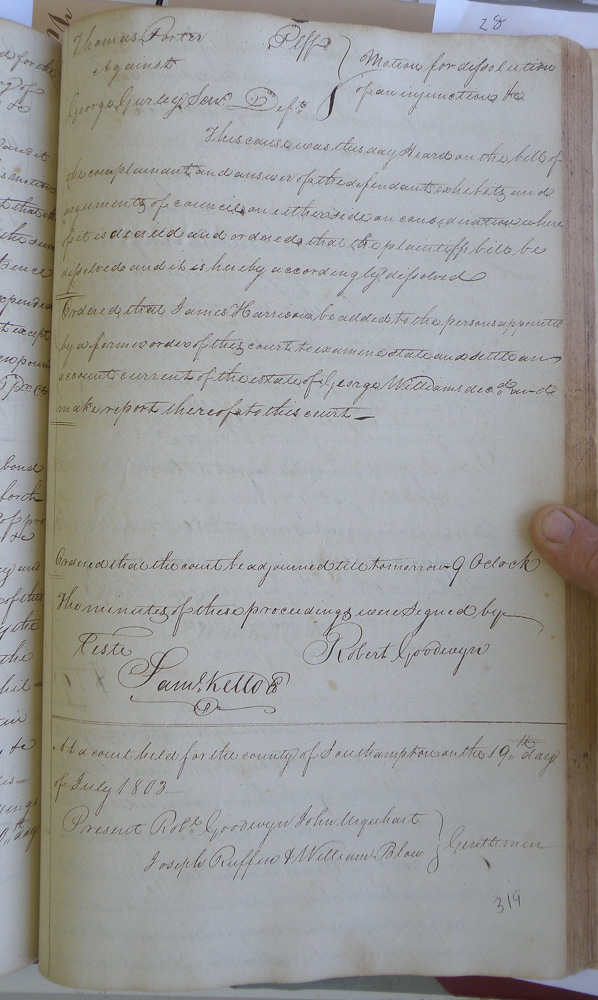 28
Thomas Porter Plff
Against
George Gurley Senr Deft
Motion for dissolution
of an injunction &c
This cause was this day Heard on the bill of
the complainant and answer of the defendant exhibets and
arguements of council on either side on concideration where
of it is decreed and ordered that the plaintiffs bill be
dissolved and it is hereby accordingly dissolved
Ordered that James Harrison be added to the persons appointed
by a former order of this court to examine state and settle an
account current of the estate of George Williams decd and
make report thereof to this court
Ordered that the court be adjourned till tomorrow 9 Oclock
The minutes of these proceedings were Signed by
Teste
Robert Goodwyn
Saml Kello
At a court held for the county of Southampton on the 19th day
of July 1803
Present Robt Goodwyn John Urquhart
Joseph Ruffin & William Blow
Gentlemen
319